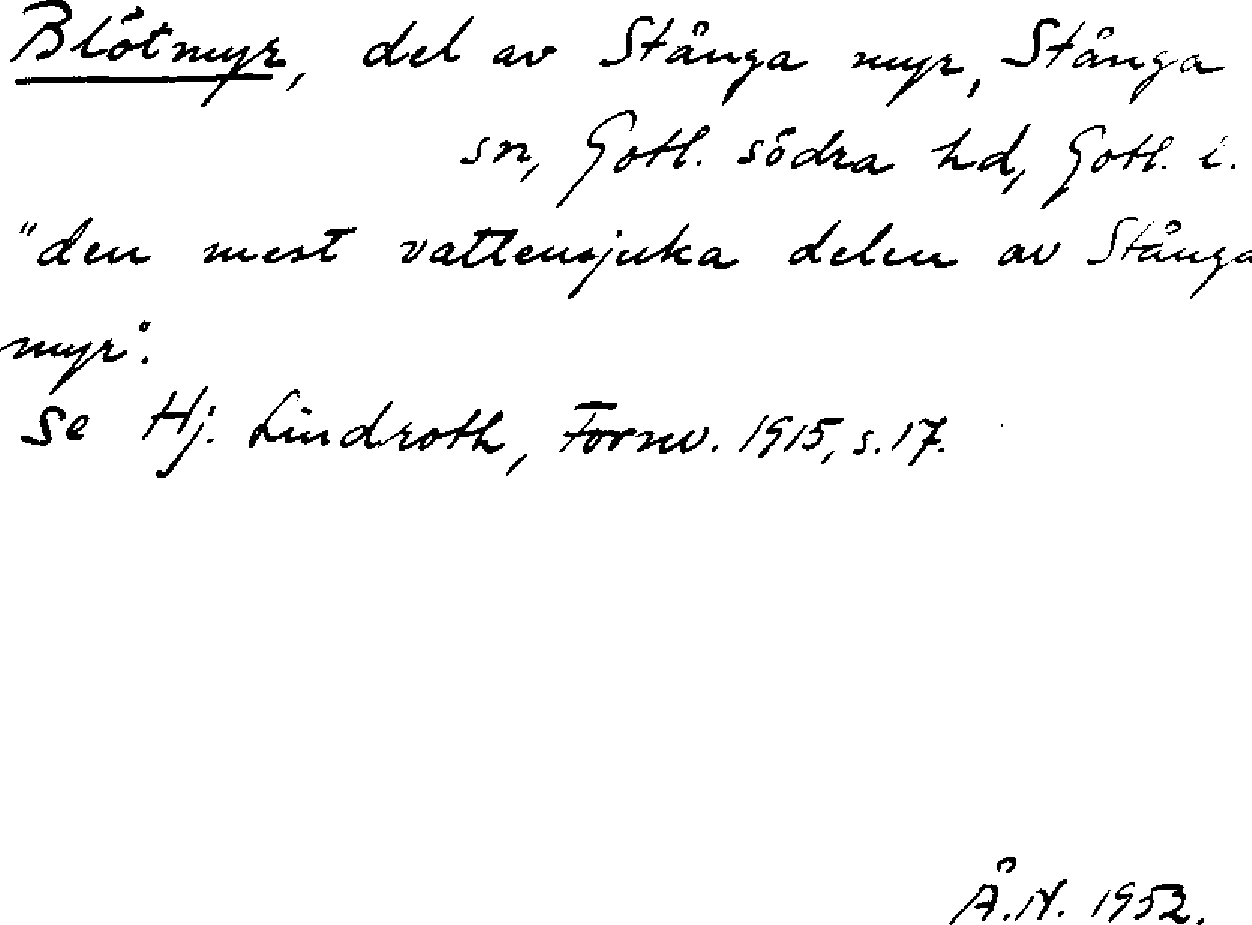 Blötmyr, del av Stånga myr, Stånga
sn, Gotl. södra hd, Gotl. l.
"den mest vattensjuka delen av Stånga
myr".
Se Hj. Lindroth, Fornv. 1915, s. 17.
Å.N. 1952.